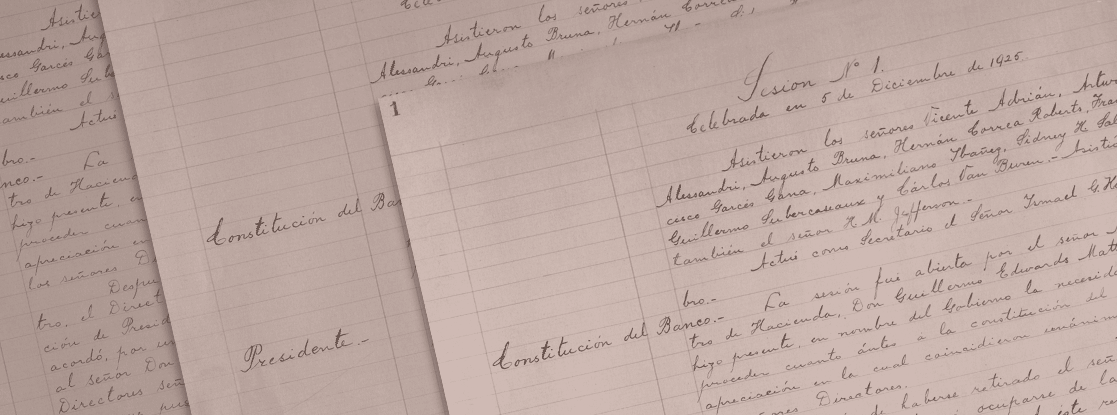 Asistie
Alessandri, Aug
cesco Garcés Gan
Guillermo Sub
también el
Actuó
bro.-
La
nco.-
tro de Haciend
hizo presente, en
proceder cuan
apreciación en
los señores D
Despu
tro, el Direct
ción de Presid
acordó, por un
al señor Don
Directores señ
Asistieron los señores
Alessandri, Augusto Bruna, Hernán Correa
Constitución del Ban
Presidente.-
1
Sesion Nº 1.
Celebrada en 5 de Diciembre de 1925
Asistieron los señores Vicente Adrián, Artur
Alessandri, Augusto Bruna, Hernán Correa Roberts, Fran
cesco Garcés Gana, Maximiliano Ibañez, Sidney H. Sal
Guillermo Subercaseaux y Cárlos Van Buren.- Asisti
también el señor H. M. Jefferson.-
Actuó como Secretario el Señor Ismael G. Hu
bro.-
La sesión fué abierta por el señor
Constitución del Banco.-
tro de Hacienda, Don Guillermo Edwards Matt
hizo presente, en nombre del Gobierno la necesid
proceder cuanto ántes a la constitución del
apreciación en la cual coincidieron unánim
ores Directores.
de haberse retirado el señ
ocuparse de la